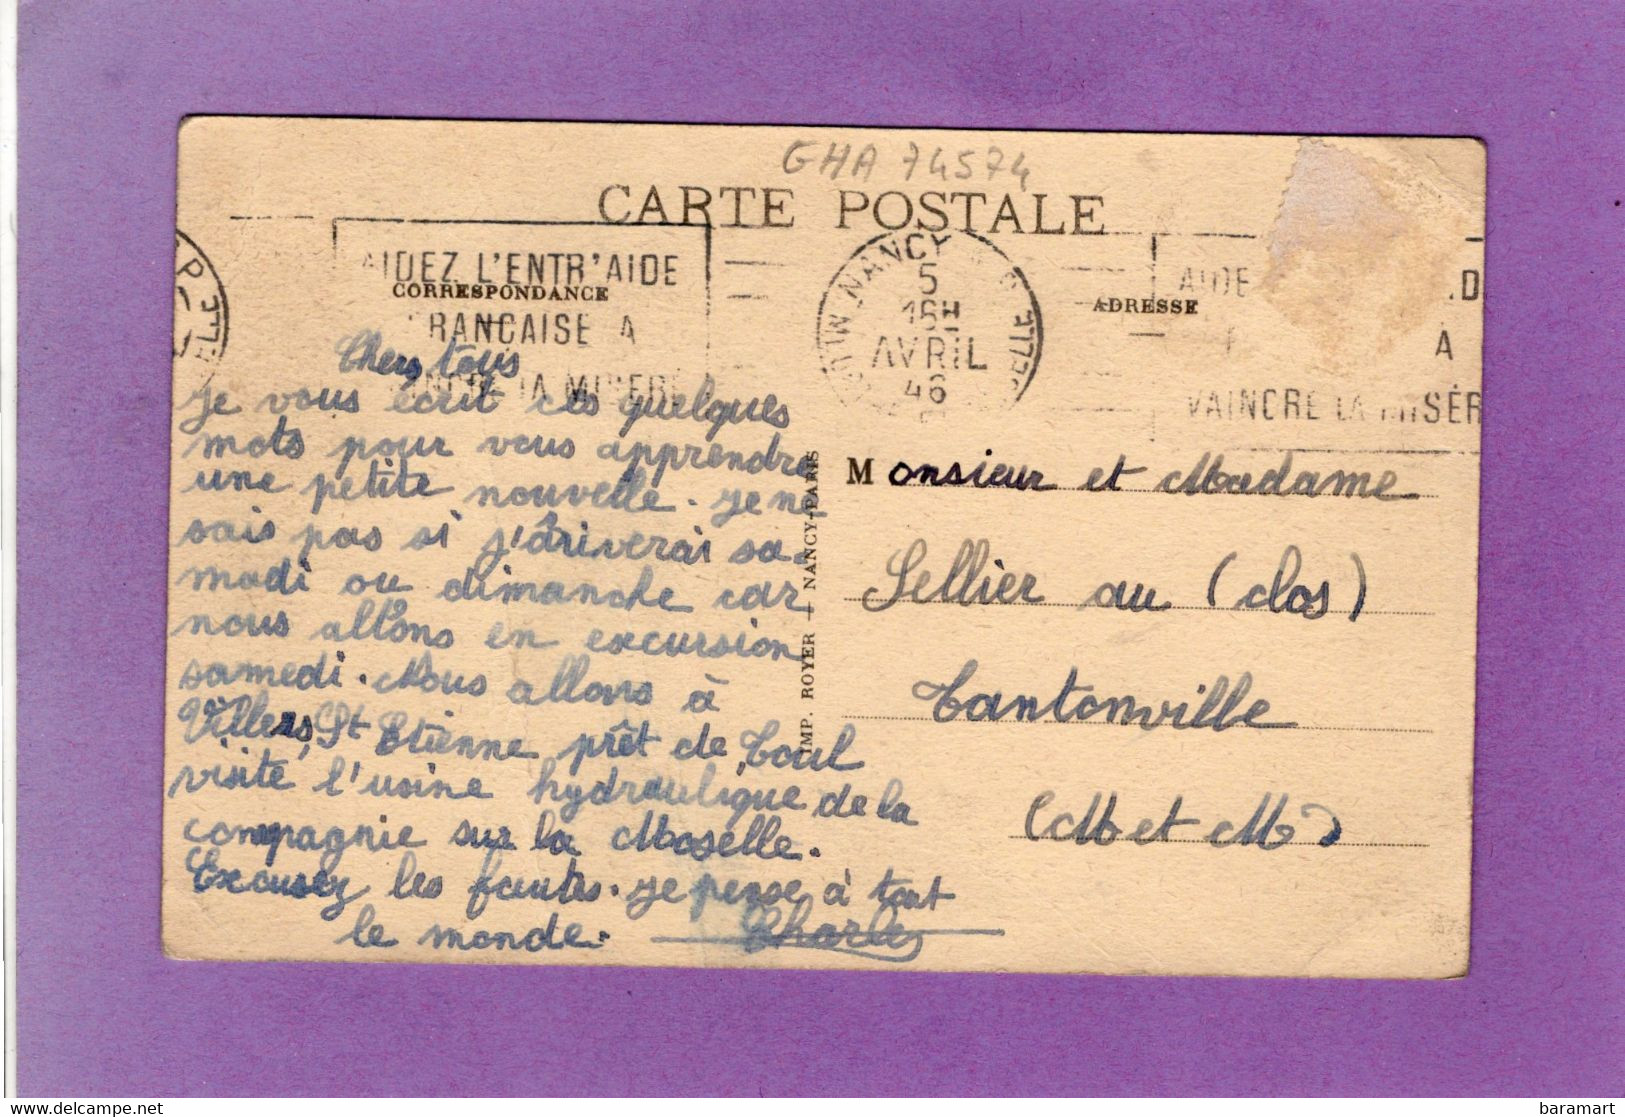 GHA 74574
CARTE POSTALE
AIDEZ L'ENTR'AIDE
RANÇAISE A
LA MISÈRE
NANCY
5
15H
AVRIL
46
AIDE
A
VAINCRE LA MISÈR
CORRESPONDANCE
ADRESSE
Chers tous
je vous écrit ces quelques
mots pour vous apprendre
une petite nouvelle. je ne
sais pas si j'âriverai sa-
medi ou dimanche car
nous allons en excursion
samedi. Nous allons à
Villers, St Etienne prêt de Toul
visité l'usine hydraulique de la
compagnie sur la Moselle.
Excusez les fautes. je pense à tout
le monde. Charles
IMP. ROYER — NANCY-PARIS
Monsieur et Madame
Sellier au (clos)
Tantonville
(M et M)
baramart